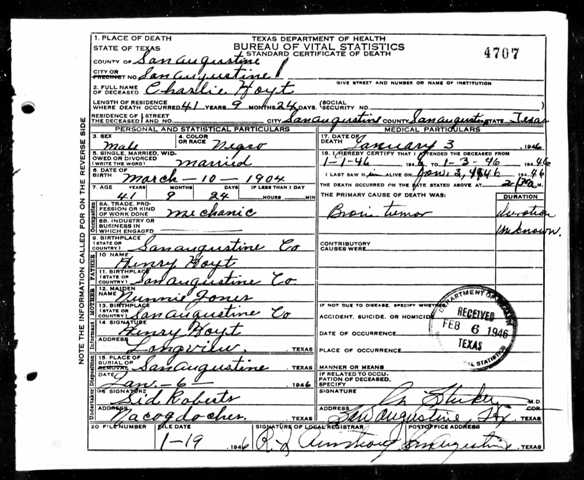 TEXAS DEPARTMENT OF HEALTH
BUREAU OF VITAL STATISTICS
STANDARD CERTIFICATE OF DEATH
4707
NOTE THE INFORMATION CALLED FOR ON THE REVERSE SIDE
1. PLACE OF DEATH
STATE OF TEXAS
COUNTY OF San Augustine
CITY OR PRECINCT NO. San Augustine
GIVE STREET AND NUMBER OR NAME OF INSTITUTION
2. FULL NAME OF DECEASED Charlie Hoyt
LENGTH OF RESIDENCE WHERE DEATH OCCURRED 41 YEARS 9 MONTHS 24 DAYS (SOCIAL SECURITY NO.
RESIDENCE OF THE DECEASED STREET AND NO. CITY San Augustine COUNTY San Augustine STATE Texas
PERSONAL AND STATISTICAL PARTICULARS
3. SEX Male
4. COLOR OR RACE Negro
5. SINGLE, MARRIED, WIDOWED OR DIVORCED (WRITE THE WORD) married
6. DATE OF BIRTH March-10-1904
7. AGE YEARS MONTHS DAYS IF LESS THAN 1 DAY
41 9 24 HOURS MIN
8A. TRADE, PROFESSION OR KIND OF WORK DONE mechanic
8B. INDUSTRY OR BUSINESS IN WHICH ENGAGED
Occupation
9. BIRTHPLACE (STATE OR COUNTRY) San Augustine Co
FATHER
10 NAME Henry Hoyt
11. BIRTHPLACE (STATE OR COUNTRY) San Augustine Co
MOTHER
12. MAIDEN NAME Nunnie Jones
13. BIRTHPLACE (STATE OR COUNTRY) San Augustine Co
Informant
14 SIGNATURE Henry Hoyt
ADDRESS Longview TEXAS
Disposition
15. PLACE OF BURIAL OR REMOVAL San Augustine TEXAS
DATE Jan-6- 1946
Undertaker
16 SIGNATURE Sid Roberts
ADDRESS Nacogdoches TEXAS
MEDICAL PARTICULARS
17. DATE OF DEATH January 3 1946
18. I HEREBY CERTIFY THAT I ATTENDED THE DECEASED FROM
1-1-46 TO 1-3-46 1946
I LAST SAW him ALIVE ON Jan 3, 1946 1946
THE DEATH OCCURRED ON THE DATE STATED ABOVE AT M
THE PRIMARY CAUSE OF DEATH WAS: DURATION
Brain tumor Duration
unknown
CONTRIBUTORY CAUSES WERE:
IF NOT DUE TO DISEASE, SPECIFY WHETHER:
ACCIDENT, SUICIDE, OR HOMICIDE
DATE OF OCCURRENCE
PLACE OF OCCURRENCE
MANNER OR MEANS
IF RELATED TO OCCUPATION OF DECEASED, SPECIFY
DEPARTMENT OF HEALTH
RECEIVED
FEB 6 1946
TEXAS
VITAL STATISTICS
SIGNATURE M.D.
ADDRESS San Augustine, Tex COR.
20 FILE NUMBER FILE DATE SIGNATURE OF LOCAL REGISTRAR POSTOFFICE ADDRESS
1-19 1946 Armstrong San Augustine TEXAS